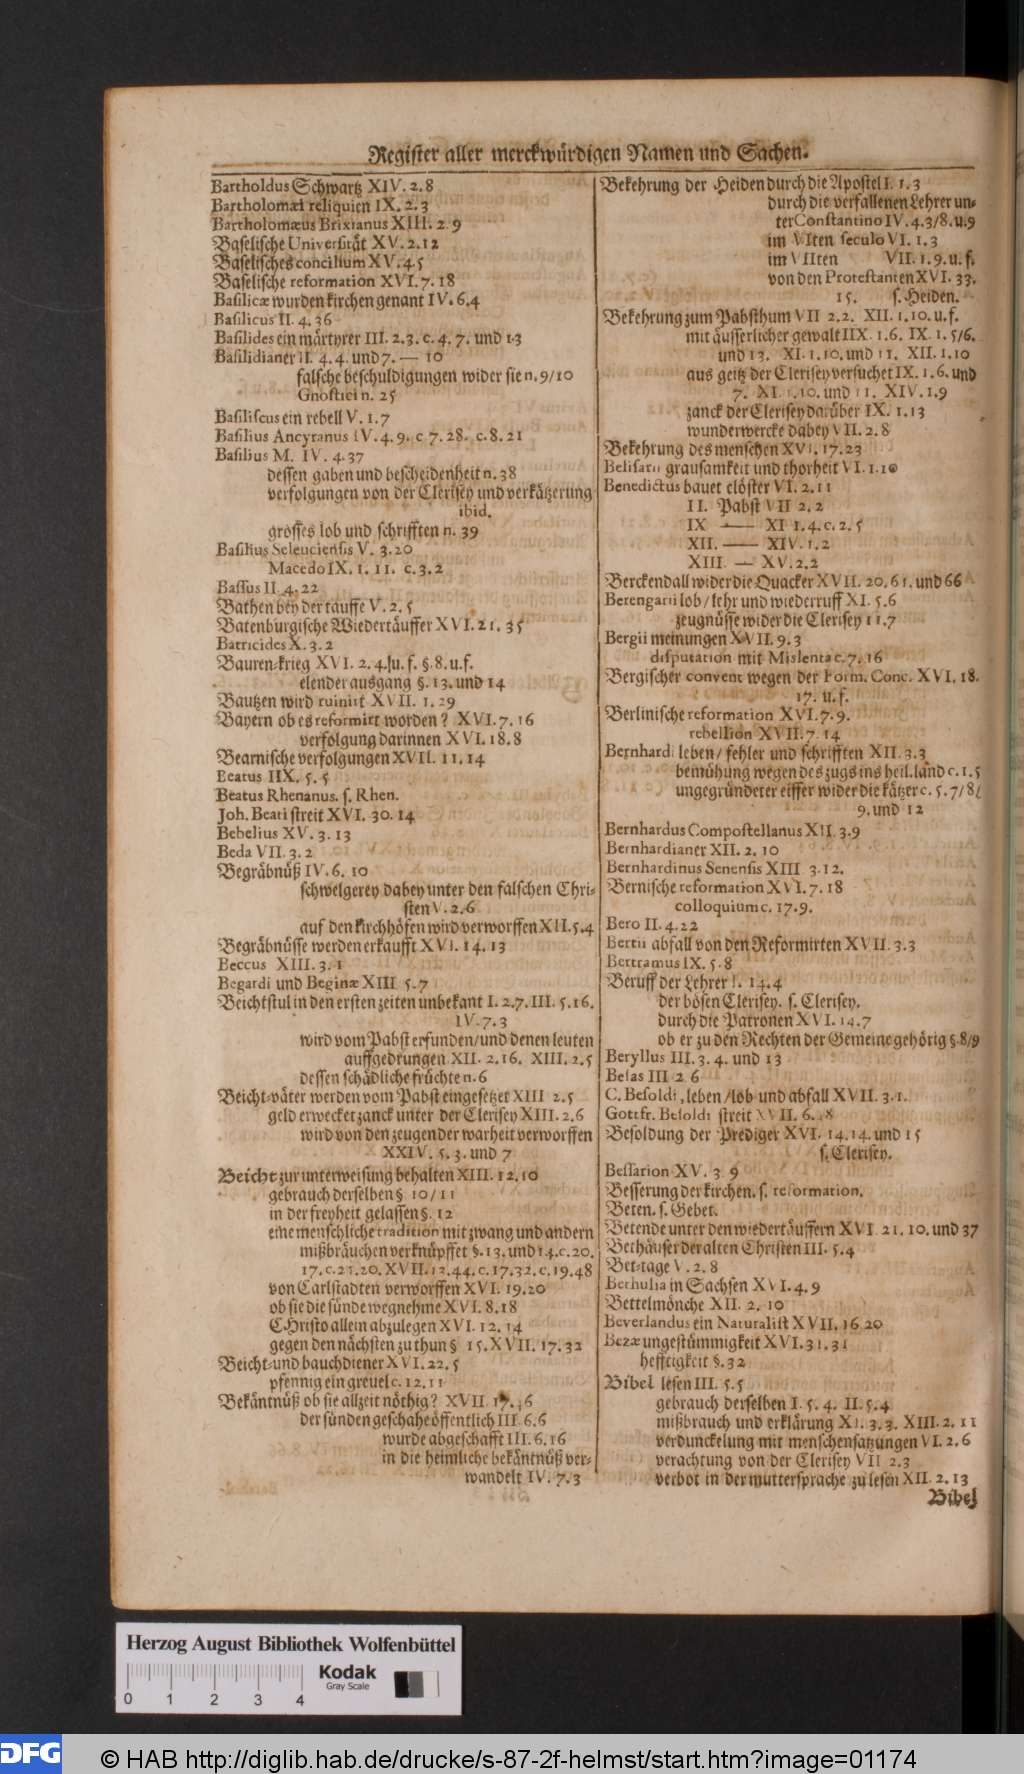 Register aller merckwürdigen Namen und Sachen.
Bartholdus Schwartz XIV. 2. 8
Bartholomæi reliquien IX. 2. 3
Bartholomæus Brixianus XIII. 2. 9
Baselische Universität XV. 2. 12
Baselisches concilium XV. 4. 5
Baselische reformation XVI. 7. 18
Basilicæ wurden kirchen genant IV. 6. 4
Basilicus II. 4. 36
Basilides ein märtyrer III. 2. 3. c. 4. 7. und 13
Basilidianer II. 4. 4. und 7. — 10
falsche beschuldigungen wider sie n. 9/10
Gnostici n. 25
Basiliscus ein rebell V. 1. 7
Basilius Ancyranus IV. 4. 9. c 7. 28. c. 8. 21
Basilius M. IV. 4. 37
dessen gaben und bescheidenheit n. 38
verfolgungen von der Clerisey und verkätzerung
ibid.
grosses lob und schrifften n. 39
Basilius Seleuciensis V. 3. 20
Macedo IX. 1. 11. c. 3. 2
Bassus II. 4. 22
Bathen bey der tauffe V. 2. 5
Batenburgische Wiedertäuffer XVI. 21. 35
Batricides X. 3. 2
Bauren-krieg XVI. 2. 4. su. f. §. 8. u. f.
elender ausgang §. 13. und 14
Bautzen wird ruinirt XVII. 1. 29
Bayern ob es reformirt worden? XVI. 7. 16
verfolgung darinnen XVI. 18. 8
Bearnische verfolgungen XVII. 11. 14
Beatus IIX. 5. 5
Beatus Rhenanus. s. Rhen.
Joh. Beati streit XVI. 30. 14
Bebelius XV. 3. 13
Beda VII. 3. 2
Begräbnüß IV. 6. 10
schwelgerey dabey unter den falschen Chri-
sten V. 2. 6
auf den kirchhöfen wird verworffen XII. 5. 4
Begräbnüsse werden erkaufft XVI. 14. 13
Beccus XIII. 3. 1
Begardi und Beginæ XIII 5. 7
Beichtstul in den ersten zeiten unbekant I. 2. 7. III. 5. 16.
IV. 7. 3
wird vom Pabst erfunden/ und denen leuten
auffgedrungen XII. 2. 16. XIII. 2. 5
dessen schädliche früchte n. 6
Beicht-väter werden vom Pabst eingesetzet XIII 2. 5
geld erwecket zanck unter der Clerisey XIII. 2. 6
wird von den zeugen der warheit verworffen
XXIV. 5. 3. und 7
Beicht zur unterweisung behalten XIII. 12. 10
gebrauch derselben § 10/11
in der freyheit gelassen §. 12
eine menschliche tradition mit zwang und andern
mißbräuchen verknüpffet §. 13. und 14. c. 20.
17. c. 21. 20. XVII. 12. 44. c. 17. 32. c. 19. 48
von Carlstadten verworffen XVI. 19. 20
ob sie die sünde wegnehme XVI. 8. 18
CHristo allein abzulegen XVI. 12. 14
gegen den nächsten zu thun § 15. XVII. 17. 32
Beicht- und bauchdiener XVI. 22. 5
pfennig ein greuel c. 12. 11
Bekäntnüß ob sie allzeit nöthig? XVII.
der sünden geschahe öffentlich III. 6. 6
wurde abgeschafft III. 6. 16
in die heimliche bekäntnüß ver-
wandelt IV. 7. 3
Bekehrung der Heiden durch die Apostel I. 1. 3
durch die verfallenen Lehrer un-
ter Constantino IV. 4. 3/8. u. 9
im VIten seculo VI. 1. 3
im VIIten VII. 1. 9. u. f.
von den Protestanten XVI. 33.
15. s. Heiden.
Bekehrung zum Pabsthum VII 2. 2. XII. 1. 10. u. f.
mit äusserlicher gewalt IIX. 1. 6. IX. 1. 5/6.
und 13. XI. 1. 10. und 11. XII. 1. 10
aus geitz der Clerisey versuchet IX. 1. 6. und
7. XI. 1. 10. und 11. XIV. 1. 9
zanck der Clerisey darüber IX. 1. 13
wunderwercke dabey VII. 2. 8
Bekehrung des menschen XVI. 17. 23
Belisarii grausamkeit und thorheit VI. 1. 10
Benedictus bauet clöster VI. 2. 11
II. Pabst VII 2. 2
IX — XI 1. 4. c. 2. 5
XII. — XIV. 1. 2
XIII — XV. 2. 2
Berckendall wider die Quacker XVII. 20. 61. und 66
Berengarii lob/ lehr und wiederruff XI. 5. 6
zeugnüsse wider die Clerisey 11. 7
Bergii meinungen XVII. 9. 3
disputation mit Mislenta c. 7. 16
Bergischer convent wegen der Form. Conc. XVI. 18.
17. u. f.
Berlinische reformation XVI. 7. 9.
rebellion XVII. 7. 14
Bernhardi leben/ fehler und schrifften XII. 3. 3
bemühung wegen des zugs ins heil. land c. 1. 5
ungegründeter eiffer wider die kätzer c. 5. 7/8/
9. und 12
Bernhardus Compostellanus XII. 3. 9
Bernhardianer XII. 2. 10
Bernhardinus Senensis XIII 3. 12.
Bernische reformation XVI. 7. 18
colloquium c. 17. 9.
Bero II. 4. 22
Bertii abfall von den Reformirten XVII. 3. 3
Bertramus IX. 5. 8
Beruff der Lehrer I. 14. 4
der bösen Clerisey. s. Clerisey.
durch die Patronen XVI. 14. 7
ob er zu den Rechten der Gemeine gehörig §. 8/9
Beryllus III. 3. 4. und 13
Besas III 2 6
C. Besoldi, leben/ lob und abfall XVII. 3. 1.
Gottfr. Besoldi streit XVII. 6. 8
Besoldung der Prediger XVI. 14. 14. und 15
s. Clerisey.
Bessarion XV. 3 9
Besserung der kirchen. s. reformation.
Beten. s. Gebet.
Betende unter den wiedertäuffern XVI 21. 10. und 37
Bethäuser der alten Christen III. 5. 4
Bet-tage V. 2. 8
Bethulia in Sachsen XVI. 4. 9
Bettelmönche XII. 2. 10
Beverlandus ein Naturalist XVII. 16 20
Bezæ ungestümmigkeit XVI. 31. 31
hefftigkeit §. 32
Bibel lesen III. 5. 5
gebrauch derselben I. 5. 4. II. 5. 4
mißbrauch und erklärung XI. 3. 3. XIII. 2. 11
verdunckelung mit menschensatzungen VI. 2. 6
verachtung von der Clerisey VII 2. 3
verbot in der muttersprache zu lesen XII. 2. 13
Bibel
Herzog August Bibliothek Wolfenbüttel
Kodak
Gray Scale
0 1 2 3 4
DFG
© HAB http://diglib.hab.de/drucke/s-87-2f-helmst/start.htm?image=01174